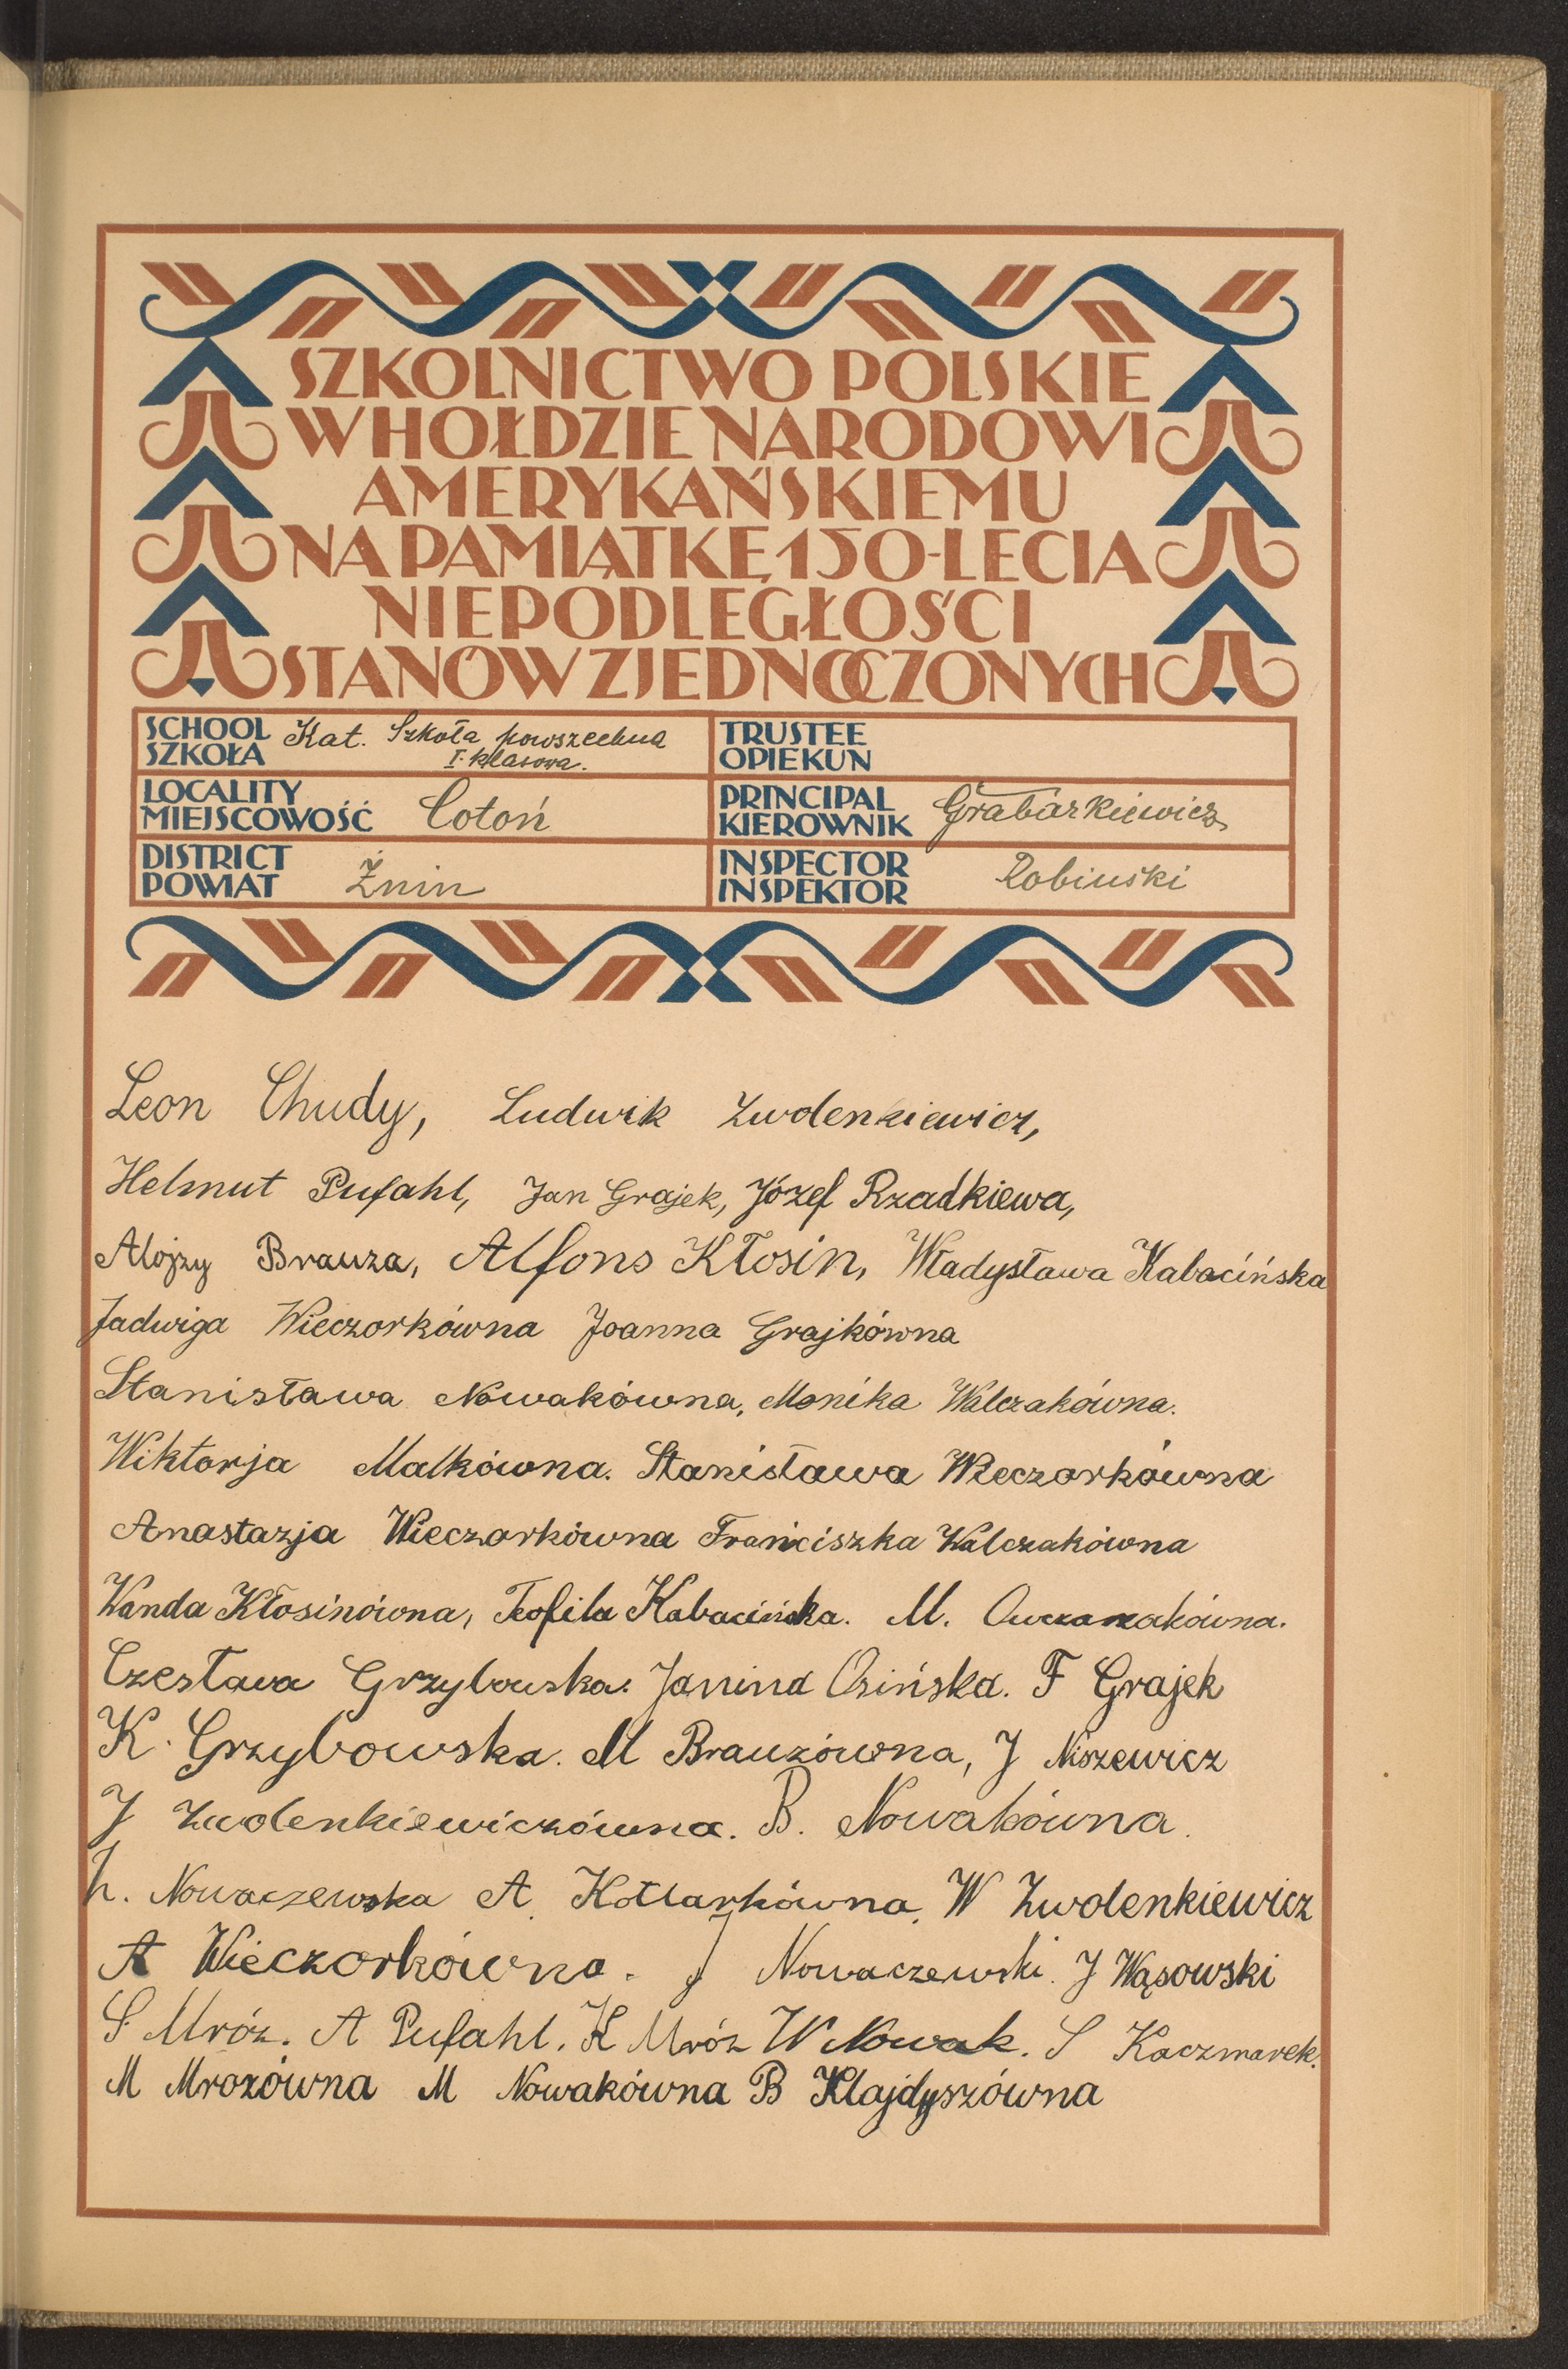 SZKOLNICTWO POLSKIE
W HOŁDZIE NARODOWI
AMERYKAŃSKIEMU
NA PAMIĄTKĘ 150-LECIA
NIEPODLEGŁOŚCI
STANÓW ZJEDNOCZONYCH
SCHOOL
SZKOŁA
Kat. Szkoła powszechna
I. klasowa.
TRUSTEE
OPIEKUN
LOCALITY
MIEJSCOWOŚĆ
Cotoń
PRINCIPAL
KIEROWNIK
Grabarkiewicz
DISTRICT
POWIAT
Żnin
INSPECTOR
INSPEKTOR
Robiński
Leon Chudy, Ludwik Zwolenkiewicz,
Helmut Pufahl, Jan Grajek, Józef Rzadkiewa,
Alojzy Brauza, Alfons Kłosin, Władysława Kabacińska
Jadwiga Wieczorkówna Joanna Grajkówna
Stanisława Nowakówna, Monika Walczakówna.
Wiktorja Malkówna. Stanisława Wieczorkówna
Anastazja Wieczorkówna Franciszka Walczakówna
Wanda Kłosinówna, Teofila Kabacińska. M. Owczarzakówna.
Czesława Grzybowska. Janina Osińska. F Grajek
K. Grzybowska. M Brauzówna, J Niszewicz
J Zwolenkiewiczówna. B. Nowakówna.
Nowaczewska A. Kotlarkówna, W Zwolenkiewicz
A Wieczorkówna. J Nowaczewski. J Wąsowski
S Mróz. A Pufahl. K Mróz W Nowak. S Kaczmarek.
M Mrozówna M Nowakówna B Klajdyszówna